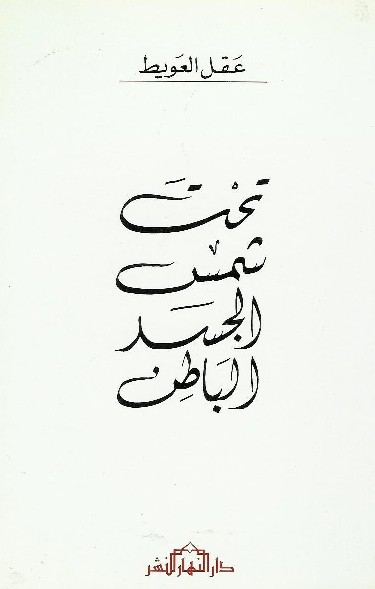 عَقل العَويط
تحْتَ
شمسْ
الجسَد
البَاطِن
دار النهار للنشر